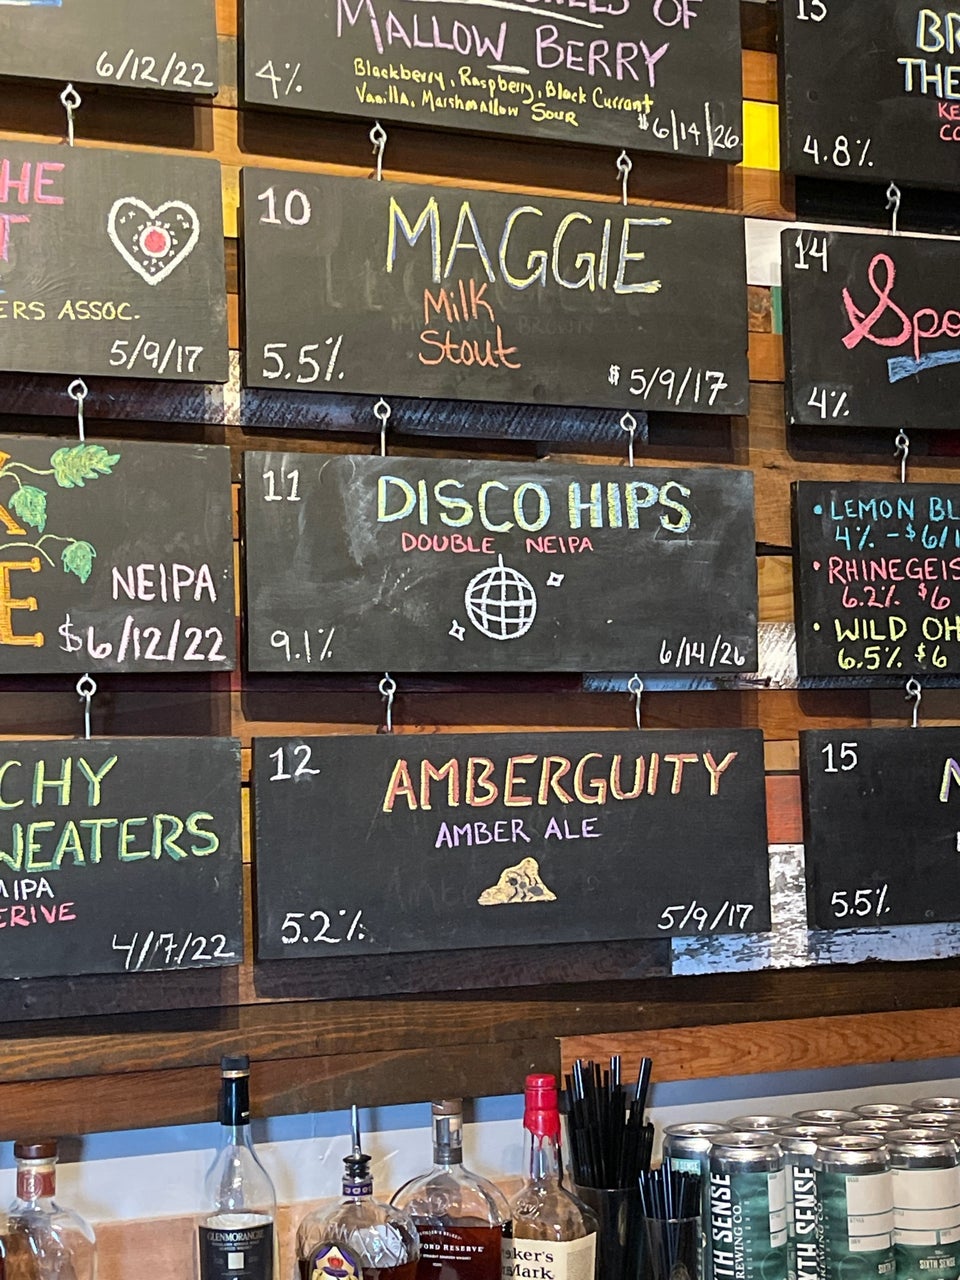 6/12/22
HE
T
ERS ASSOC.
5/9/17
NEIPA
$6/12/22
CHY
WEATERS
4/7/22
OF
MALLOW BERRY
4%
Blackberry, Raspberry, Black Currant
Vanilla, Marshmallow Sour
$6/14/26
10
MAGGIE
Milk
Stout
5.5%
$5/9/17
11
DISCO HIPS
DOUBLE NEIPA
9.1%
6/14/26
12
AMBERGUITY
AMBER ALE
5.2%
5/9/17
13
BR
THE
KE
CO
4.8%
14
Spo
4%
• LEMON BL
4% - $6/1
• RHINEGEIS
6.2% $6
• WILD OH
6.5% $6
15
5.5%
GLENMORANGIE
FORD RESERVE
aker's
Mark
TH SENSE
REWING CO.
TH SENSE
REWING CO.
SIXTH SENSE